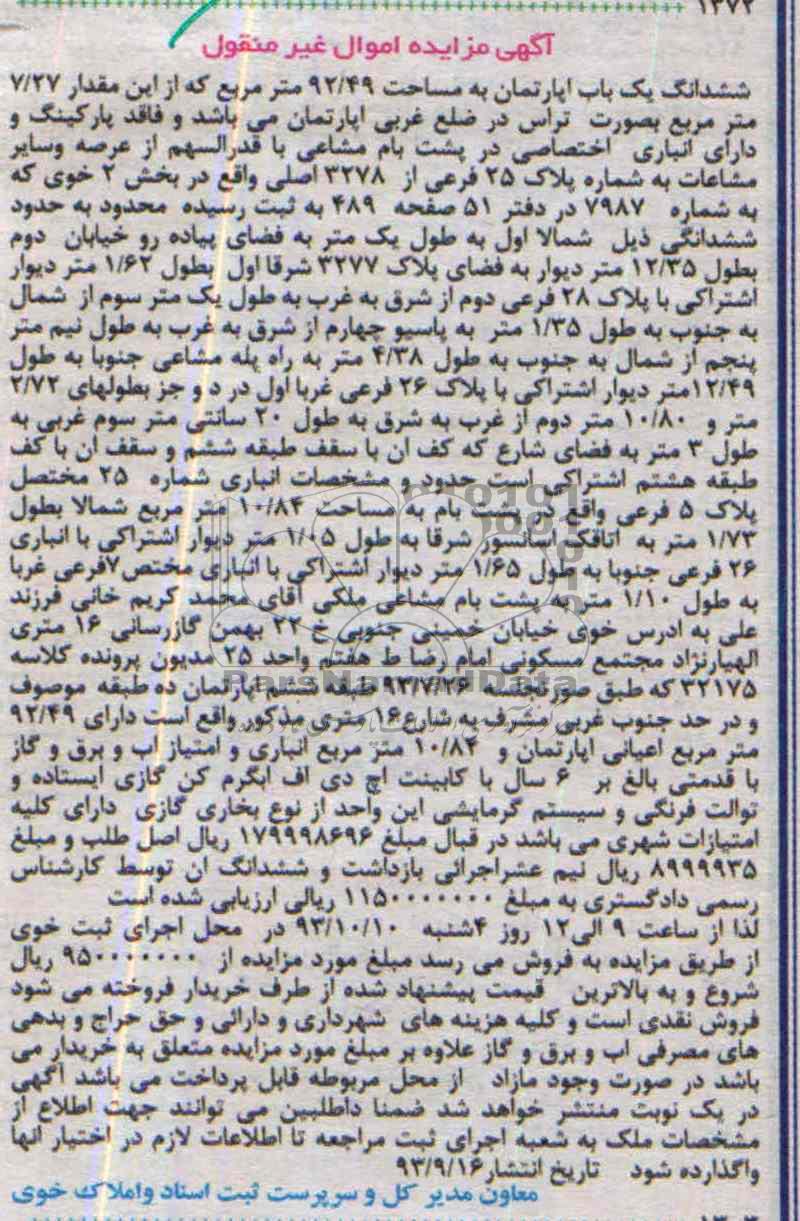 ۱۳۷۲
آگهی مزایده اموال غیر منقول
ششدانگ یک باب اپارتمان به مساحت ۹۲/۴۹ متر مربع که از این مقدار ۷/۲۷
متر مربع بصورت تراس در ضلع غربی اپارتمان می باشد و فاقد پارکینگ و
دارای انباری اختصاصی در پشت بام مشاعی با قدرالسهم از عرصه وسایر
مشاعات به شماره پلاک ۲۵ فرعی از ۳۲۷۸ اصلی واقع در بخش ۲ خوی که
به شماره ۷۹۸۷ در دفتر ۵۱ صفحه ۴۸۹ به ثبت رسیده محدود به حدود
ششدانگی ذیل شمالا اول به طول یک متر به فضای پیاده رو خیابان دوم
بطول ۱۲/۳۵ متر دیوار به فضای پلاک ۳۲۷۷ شرقا اول بطول ۱/۶۲ متر دیوار
اشتراکی با پلاک ۲۸ فرعی دوم از شرق به غرب به طول یک متر سوم از شمال
به جنوب به طول ۱/۳۵ متر به پاسیو چهارم از شرق به غرب به طول نیم متر
پنجم از شمال به جنوب به طول ۴/۳۸ متر به راه پله مشاعی جنوبا به طول
۱۲/۴۹متر دیوار اشتراکی با پلاک ۲۶ فرعی غربا اول در د و جز بطولهای ۲/۷۲
متر و ۱۰/۸۰ متر دوم از غرب به شرق به طول ۲۰ سانتی متر سوم غربی به
طول ۳ متر به فضای شارع که کف ان با سقف طبقه ششم و سقف ان با کف
طبقه هشتم اشتراکی است حدود و مشخصات انباری شماره ۲۵ مختصل
پلاک ۵ فرعی واقع در پشت بام به مساحت ۱۰/۸۴ متر مربع شمالا بطول
۱/۷۳ متر به اتاقک اسانسور شرقا به طول ۱/۰۵ متر دیوار اشتراکی با انباری
۲۶ فرعی جنوبا به طول ۱/۶۵ متر دیوار اشتراکی با انباری مختص۷فرعی غربا
به طول ۱/۱۰ متر به پشت بام مشاعی ملکی آقای محمد کریم خانی فرزند
علی به ادرس خوی خیابان خمینی جنوبی خ ۲۲ بهمن گازرسانی ۱۶ متری
الهیارنژاد مجتمع مسکونی امام رضا ط هفتم واحد ۲۵ مدیون پرونده کلاسه
۳۲۱۷۵ که طبق صورتجلسه ۹۳/۷/۲۶ طبقه ششم اپارتمان ده طبقه موصوف
و در حد جنوب غربی مشرف به شارع۱۶ متری مذکور واقع است دارای ۹۲/۴۹
متر مربع اعیانی اپارتمان و ۱۰/۸۴ متر مربع انباری و امتیاز اب و برق و گاز
با قدمتی بالغ بر ۶ سال با کابینت اچ دی اف ابگرم کن گازی ایستاده و
توالت فرنگی و سیستم گرمایشی این واحد از نوع بخاری گازی دارای کلیه
امتیازات شهری می باشد در قبال مبلغ ۱۷۹۹۹۸۶۹۶ ریال اصل طلب و مبلغ
۸۹۹۹۹۳۵ ریال نیم عشراجرائی بازداشت و ششدانگ ان توسط کارشناس
رسمی دادگستری به مبلغ ۱۱۵۰۰۰۰۰۰۰ ریالی ارزیابی شده است
لذا از ساعت ۹ الی۱۲ روز ۴شنبه ۹۳/۱۰/۱۰ در محل اجرای ثبت خوی
از طریق مزایده به فروش می رسد مبلغ مورد مزایده از ۹۵۰۰۰۰۰۰۰۰ ریال
شروع و به بالاترین قیمت پیشنهاد شده از طرف خریدار فروخته می شود
فروش نقدی است و کلیه هزینه های شهرداری و دارائی و حق حراج و بدهی
های مصرفی اب و برق و گاز علاوه بر مبلغ مورد مزایده متعلق به خریدار می
باشد در صورت وجود مازاد از محل مربوطه قابل پرداخت می باشد آگهی
در یک نوبت منتشر خواهد شد ضمنا داطلبین می توانند جهت اطلاع از
مشخصات ملک به شعبه اجرای ثبت مراجعه تا اطلاعات لازم در اختیار انها
واگذارده شود تاریخ انتشار۹۳/۹/۱۶
معاون مدیر کل و سرپرست ثبت اسناد واملاک خوی
ParsNamadData